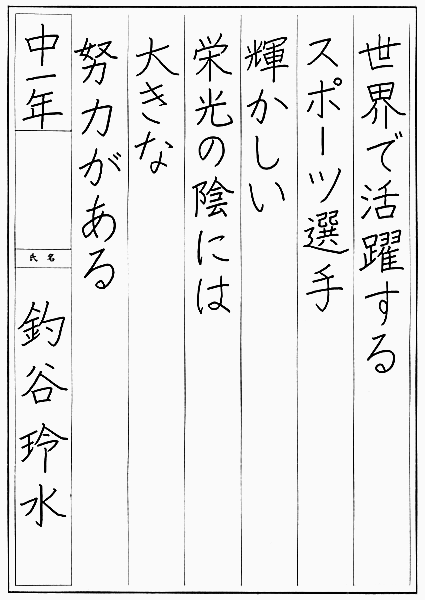 世界で活躍する
スポーツ選手
輝かしい
栄光の陰には
大きな
努力がある
中一年
氏名
釣谷玲水